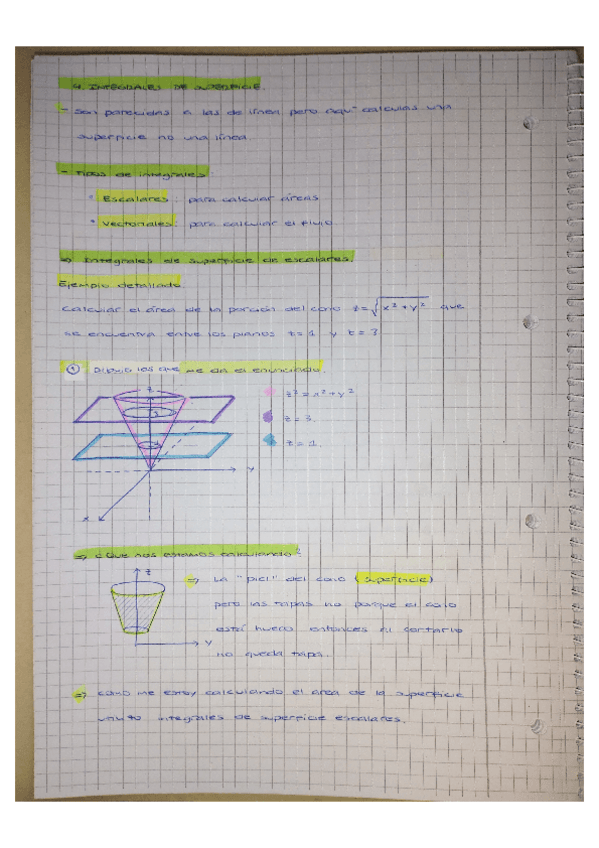 4. INTEGRALES DE SUPERFICIE.
- Son parecidas a las de línea pero aquí calculas una
superficie no una línea.
- Tipos de integrales:
• Escalares: para calcular áreas
• Vectoriales: para calcular el flujo.
⇒ Integrales de superficie de escalares.
Ejemplo detallado.
Calcular el área de la porción del cono z=√x²+y² que
se encuentra entre los planos z=1 y z=3
① Dibujo los que me da el enunciado.
z
z²=x²+y²
3
z=3.
1
z=1.
y
x
⇒ ¿Que nos estamos calculando?
z
⇒ La "piel" del cono (superficie)
pero las tapas no porque el cono
está hueco entonces al cortarlo
no queda tapa.
y
⇒ Como me estoy calculando el área de la superficie
utilizo integrales de superficie escalares.